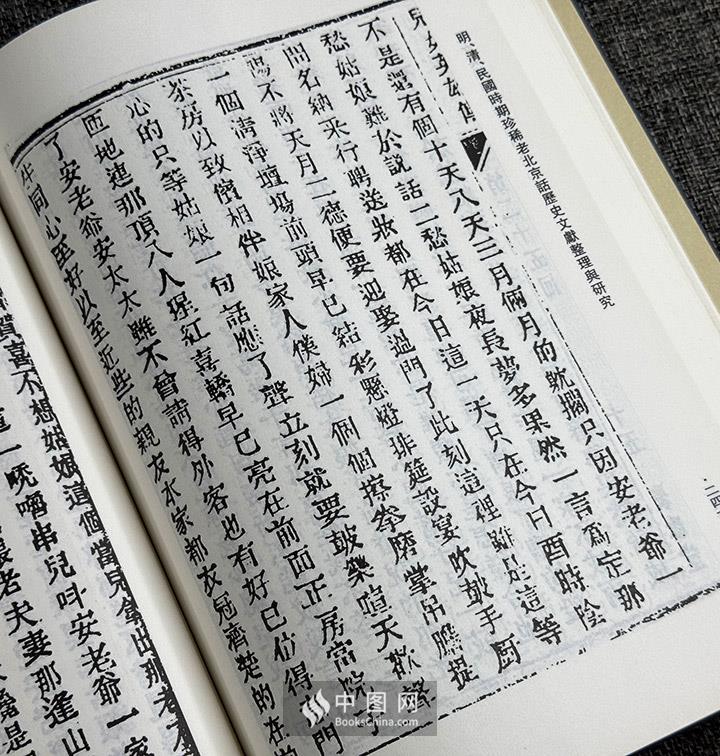 明清民國時期珍稀老北京話歷史文獻整理與研究
二四
不是還有個十天八天三月倆月的躭擱只因安老爺一
愁姑娘難於說話二愁姑娘夜長夢多果然一言爲定那
問名納采行聘送妝都在今日這一天只在今日酉時陰
陽不將天月二德便要迎娶過門了此刻這裡雖是這等
一個清淨壇塲前頭早已結彩懸燈排筵設宴吹鼓手厨
茶房以致儐相伴娘家人僕婦一個個擦拳磨掌吊膽提
心的只等姑娘一句話應了聲立刻就要鼓樂喧天歡聲
匝地連那頂八人猩紅喜轎早已亮在前面正房當院子
了安老爺安太太雖不曾請得外客也有好已位得門
同心至好以至近些的親友本家都衣冠齊楚的在
賀喜不想姑娘這個當兒拿出那老不
一 嚕串兒叫安老爺一家
老夫妻那逢山
是
中图网
BooksChina.com